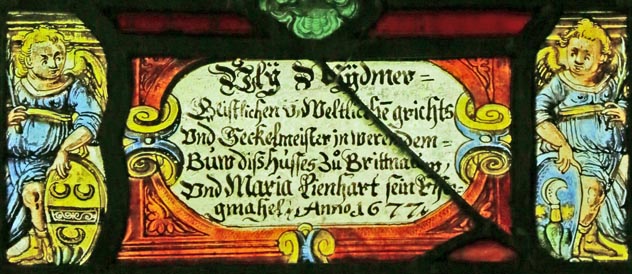 Ulÿ Wÿdmer =
Geistlichen ṽ Weltlichē grichts
Vnd Seckelmeister in werendem=
Buw diß Husses Zů Brittnauw,
Vnd Maria Lienhart sein Ehe=
gmahel; Anno 1677.